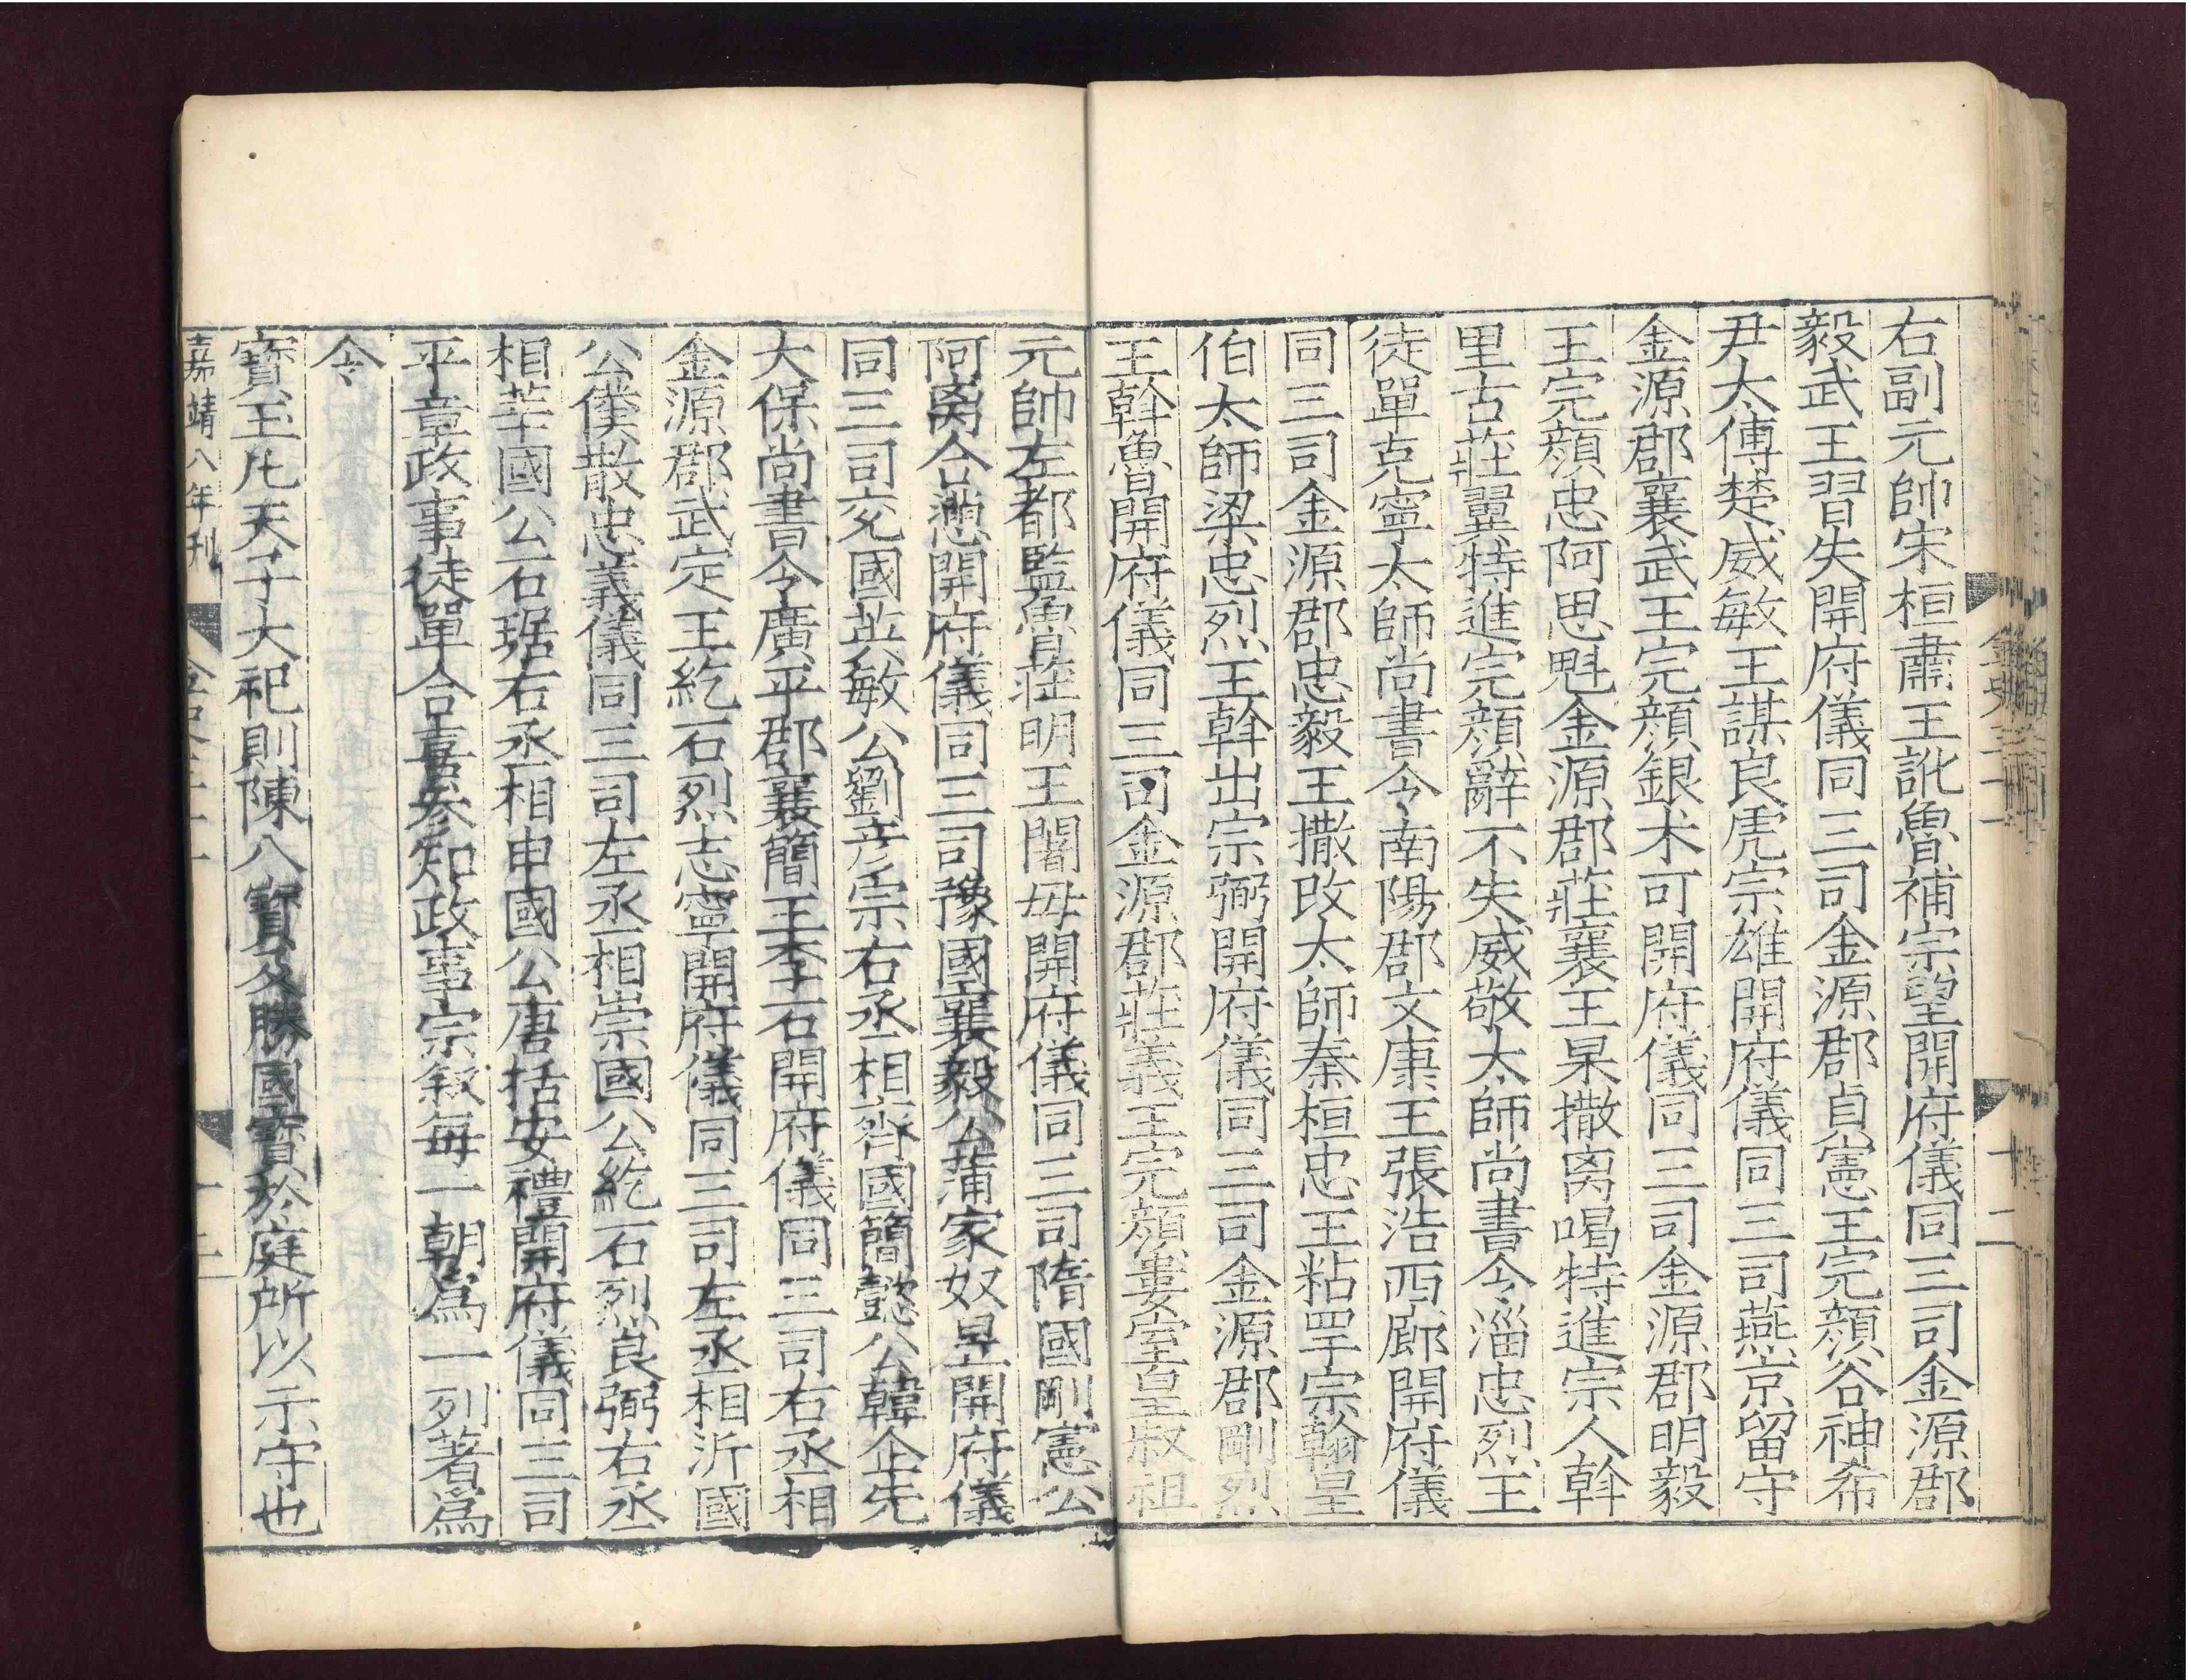 右副元帥宋桓肅王訛魯補宗望開府儀同三司金源郡
毅武王習失開府儀同三司金源郡貞憲王完顔谷神希
尹太傅楚威敏王謀良虎宗雄開府儀同三司燕京留守
金源郡襄武王完顔銀术可開府儀同三司金源郡明毅
王完顔忠阿思魁金源郡莊襄王杲撒离喝特進宗人斡
里古莊翼特進完顔辭不失威敬太師尚書令淄忠烈王
徒單克寧太師尚書令南陽郡文康王張浩西廊開府儀
同三司金源郡忠毅王撒改太師秦桓忠王粘罕宗翰皇
伯太師梁忠烈王斡出宗弼開府儀同三司金源郡剛烈
王斡魯開府儀同三司金源郡莊義王完顔婁室皇叔祖
元帥左都監魯莊明王闍母開府儀同三司隋國剛憲公
阿离合懣開府儀同三司豫國襄毅公蒲家奴昱開府儀
同三司兖國英敏公劉彦宗右丞相齊國簡懿公韓企先
大保尚書令廣平郡襄簡王李石開府儀同三司右丞相
金源郡武定王紇石烈志寧開府儀同三司左丞相沂國
公僕散忠義儀同三司左丞相崇國公紇石烈良弼右丞
相莘國公石琚右丞相申國公唐括安禮開府儀同三司
平章政事徒單合喜參知政事宗叙每一朝爲一列著爲
令
寶玉凡天子大祀則陳八寶及勝國寶於庭所以示守也
嘉靖八年刊
十二